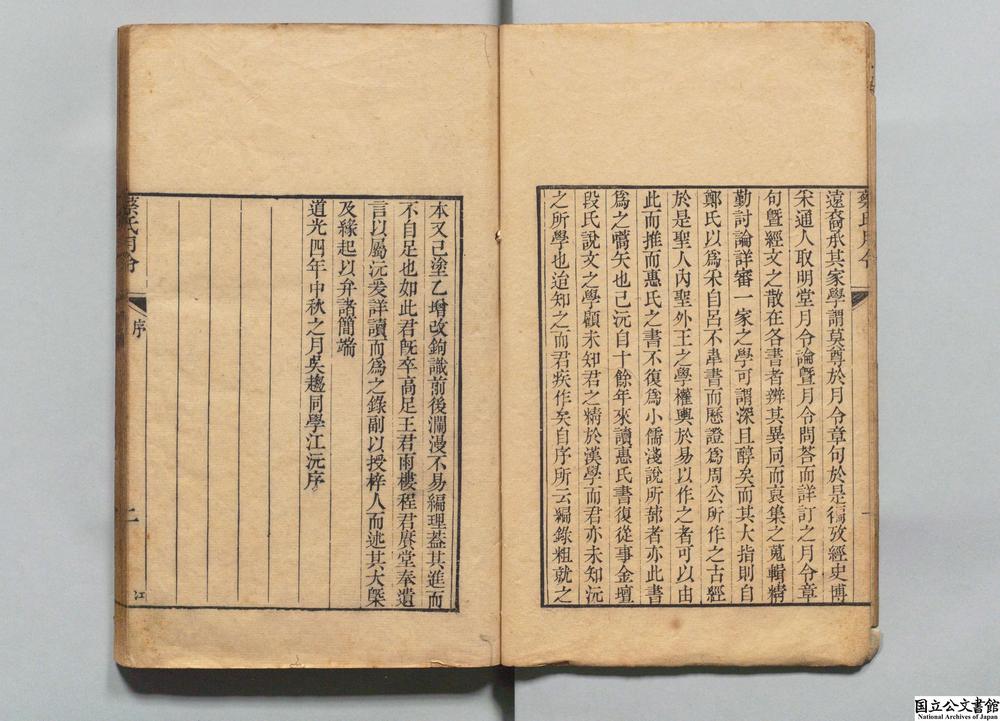 蔡氏月令
遠裔承其家學謂莫尊於月令章句於是徧攷經史博
采通人取明堂月令論曁月令問答而詳訂之月令章
句曁經文之散在各書者辨其異同而裒集之蒐輯精
勤討論詳審一家之學可謂深且醇矣而其大指則自
鄭氏以爲采自呂不韋書而歷證爲周公所作之古經
於是聖人內聖外王之學權輿於易以作之者可以由
此而推而惠氏之書不復爲小儒淺說所蔀者亦此書
爲之嚆矢也已沅自十餘年來讀惠氏書復從事金壇
段氏說文之學顧未知君之精於漢學而君亦未知沅
之所學也迨知之而君疾作矣自序所云編錄粗就之
本又已塗乙增改鉤識前後瀾漫不易編理蓋其進而
不自足也如此君旣卒高足王君雨樓程君賡堂奉遺
言以屬沅爰詳讀而爲之錄副以授梓人而述其大槩
及緣起以弁諸簡端
道光四年中秋之月吳趨同學江沅序
蔡氏月令
序
二
江
国立公文書館
National Archives of Japan